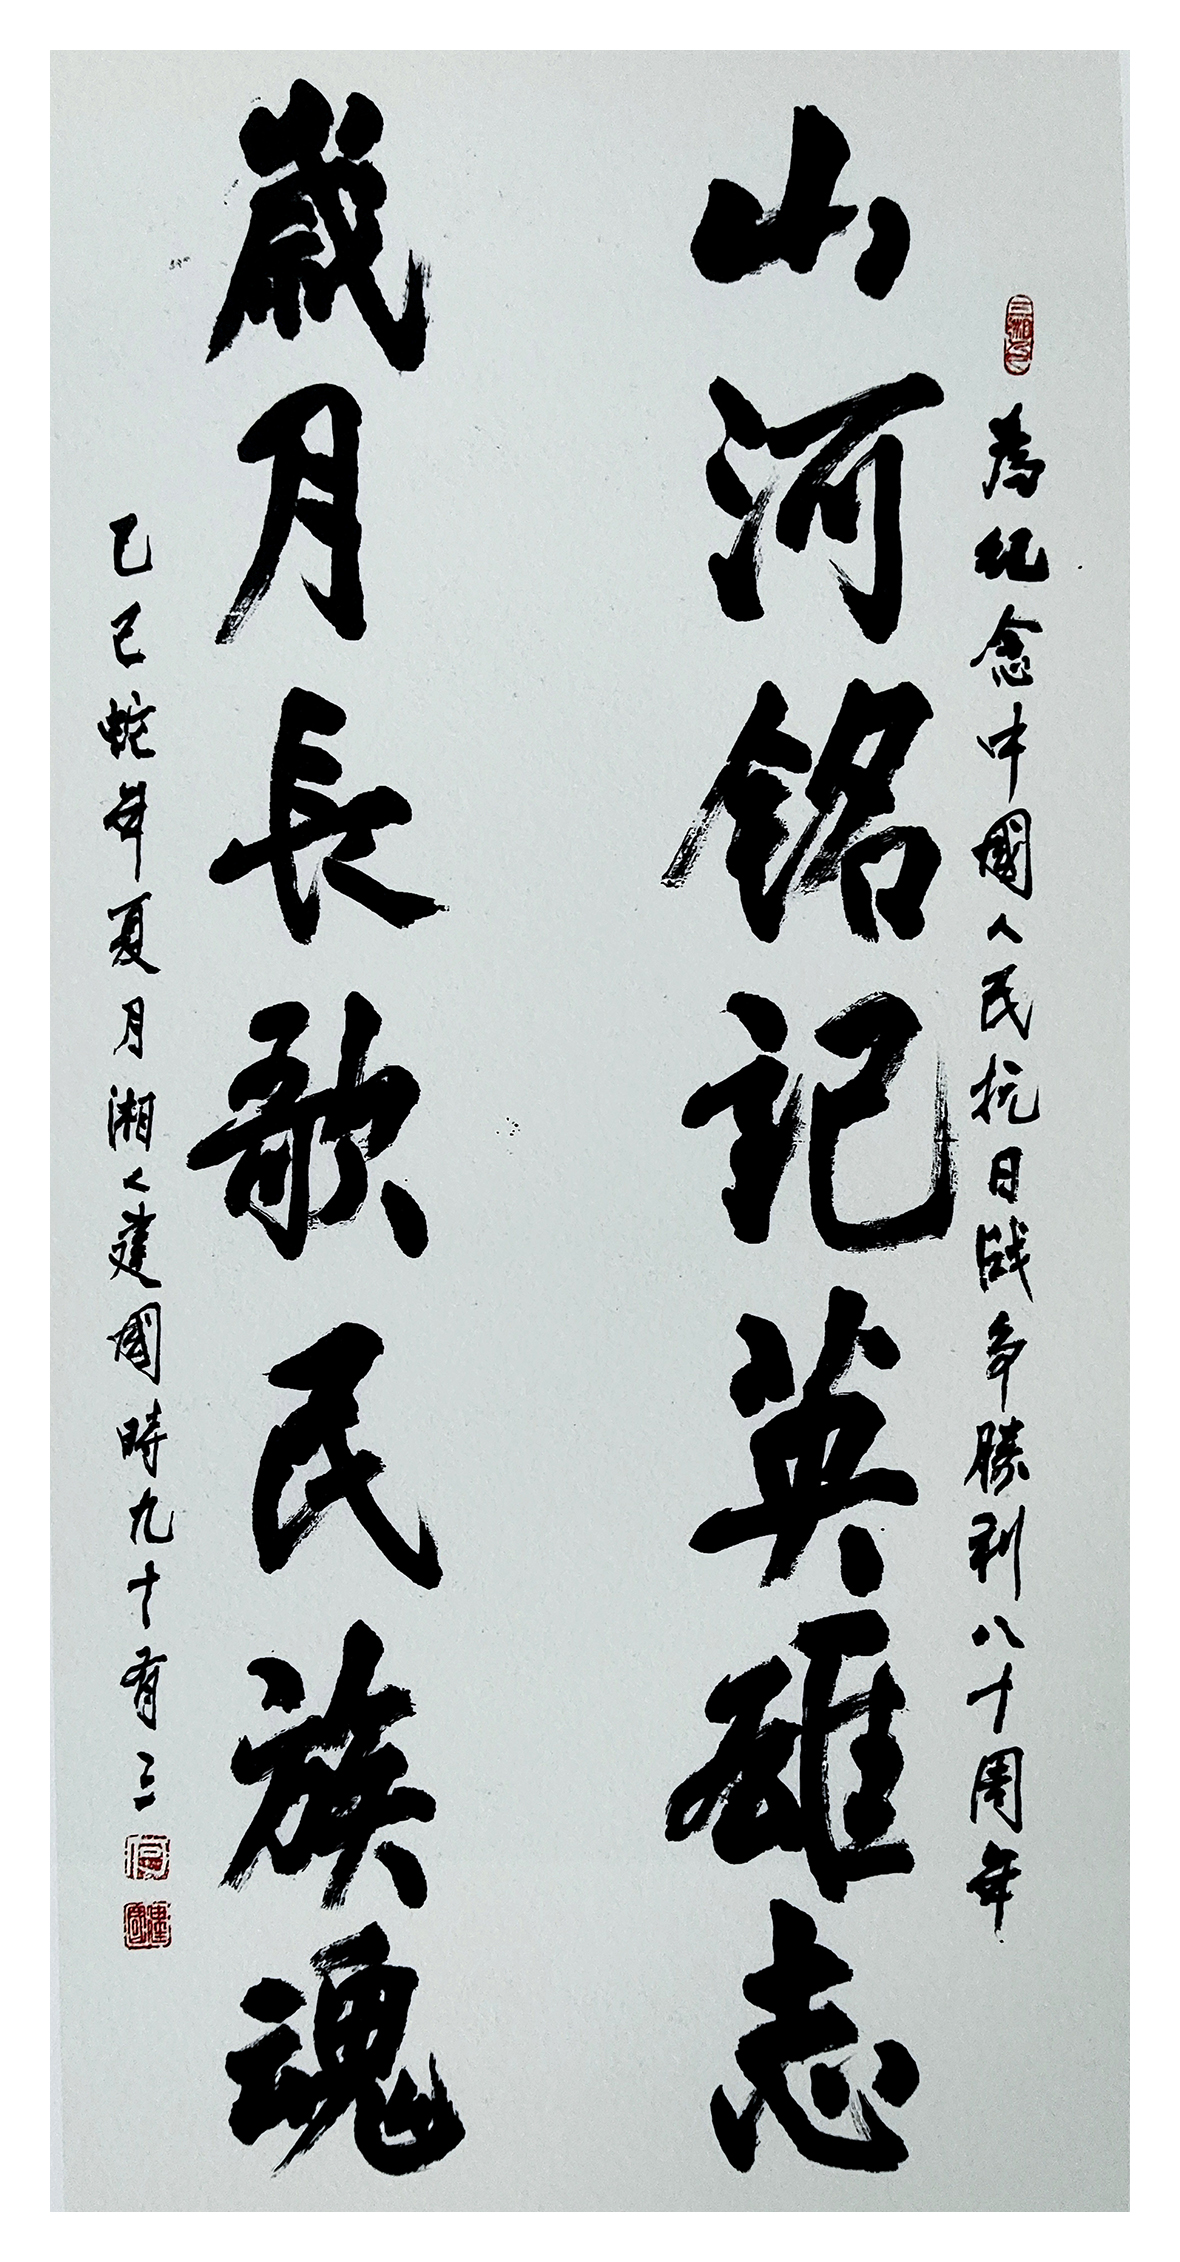 為紀念中國人民抗日战争勝利八十周年
山河銘記英雄志
歲月長歌民族魂
乙巳蛇年夏月湘人建國時九十有三